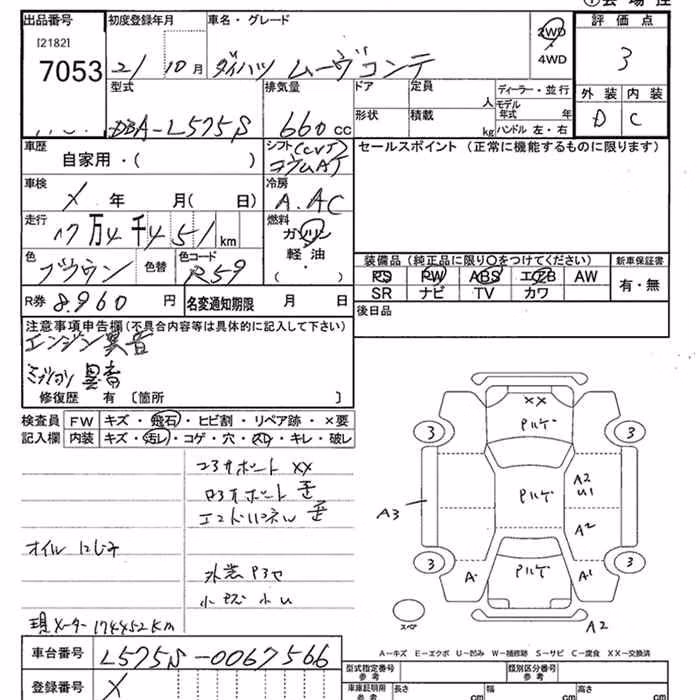 出品番号 初度登録年月 車名・グレード 2WD 評価点
[2182] 4WD
7053 21 10月 ダイハツ ムーヴコンテ 3
型式 排気量 ドア 定員 ディーラー・並行 外装 内装
人 モデル年式 年
DBA-L575S 660cc 形状 積載 kg ハンドル 左・右 D C
車歴 シフト(CVT) セールスポイント(正常に機能するものに限ります)
自家用・( ) コラムAT
車検 冷房
X 年 月( 日) A.AC
走行 燃料
17万4千451km ガソリン
色 色替 色コード 軽油・ 装備品(純正品に限り○をつけてください) 新車保証書
ブラウン R59 ( ) PS PW ABS エアB AW 有・無
SR ナビ TV カワ
R券 8.960円 名変通知期限 月 日 後日品
注意事項申告欄(不具合内容等は具体的に記入して下さい)
エンジン異音
ミッション異音
修復歴 有 [箇所 ]
検査員 FW キズ・飛石・ヒビ割・リペア跡・×要
記入欄 内装 キズ・汚レ・コゲ・穴・スレ・キレ・破レ
コアサポート XX
コアサポート 歪
エンドパネル 歪
オイルにじみ
外装 アセ
小キズ 小U
現メーター 174452km
XX
アルゲ
3 3
A2
U1
アルゲ
A3
A2
3 3
A アルゲ A1
スペア
A2
A－キズ E－エクボ U－凹み W－補修跡 S－サビ C－腐食 XX－交換済
車台番号 L575S-0067566
登録番号 X
型式指定番号 参考 類別区分番号 参考
車庫証明用 参考 長さ cm 幅 cm 高さ cm